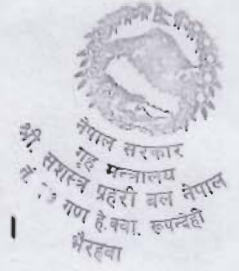 नेपाल सरकार
गृह मन्त्रालय
श्री. सशस्त्र प्रहरी बल नेपाल
गण हे.क्वा. रूपन्देही
भैरहवा